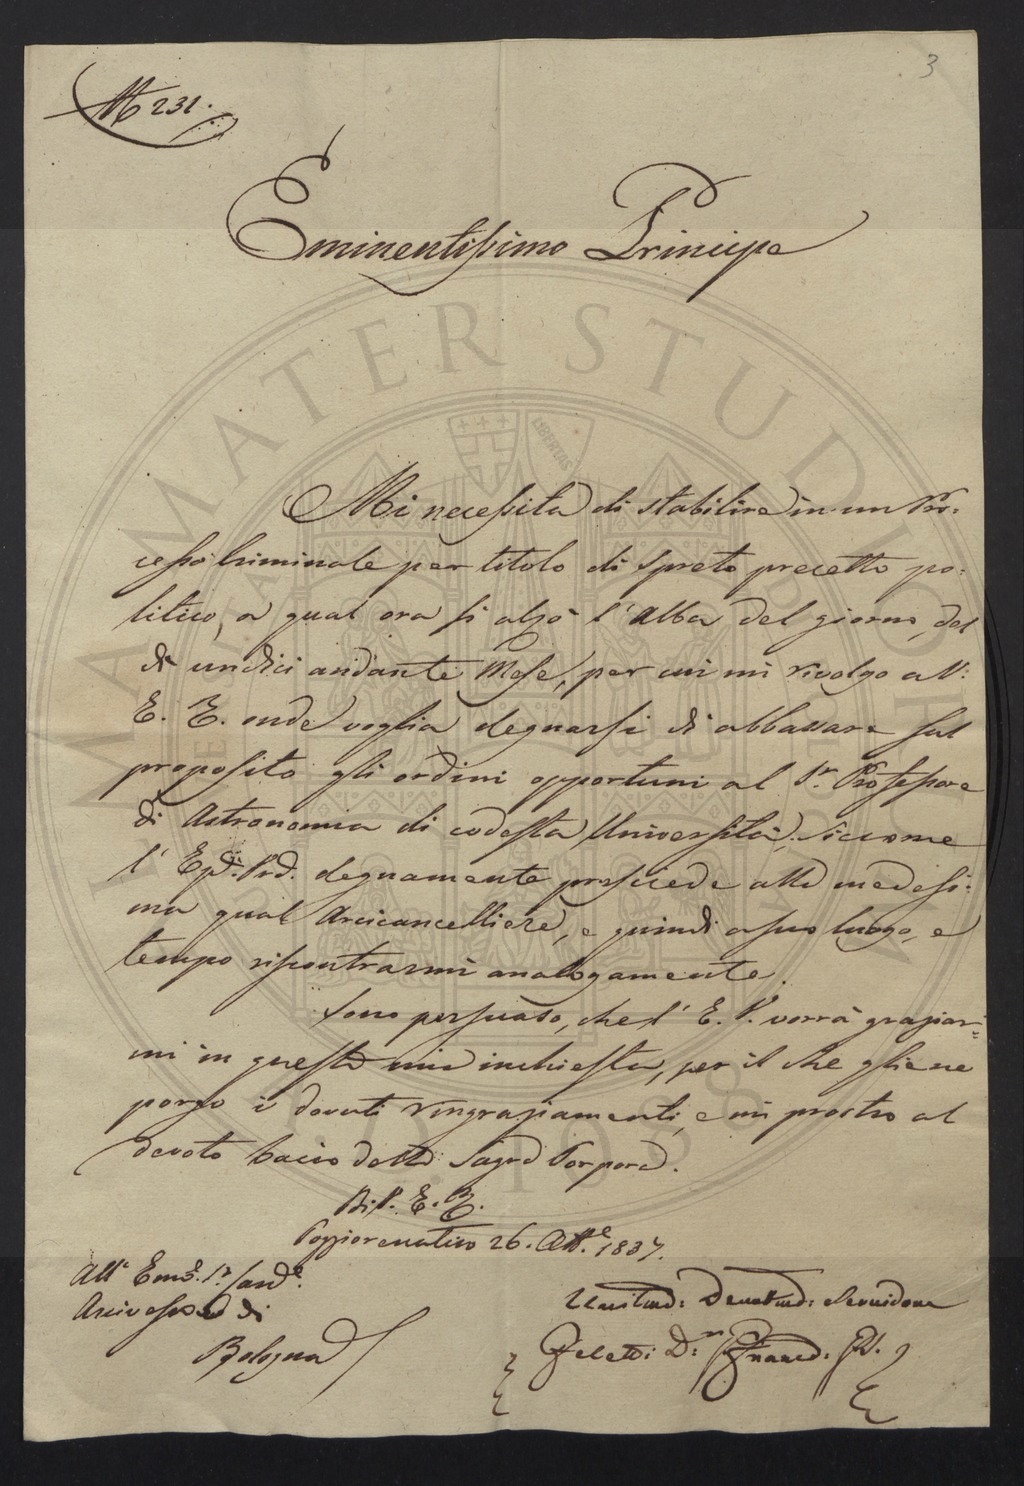 3
N. 232.
Eminentissimo Principe
Mi necessita di stabilire in un Pro:
cesso Criminale per titolo di spreto precetto po:
litico, a qual ora si alzò l'Alba del giorno, del
dì undici andante Mese, per cui mi rivolgo a V:
E. R. onde voglia degnarsi di abbassare sul
proposito gli ordini opportuni al Sr. Professore
di Astronomia di codesta Università, siccome
l' degnamente presiede alla medesi:
ma qual Arcicancelliere, e quindi a suo luogo, e
tempo riscontrarmi analogamente.
Sono persuaso, che l'E. V. vorrà graziar:
mi in questa mia inchiesta, per il che gliene
porgo i dovuti ringraziamenti, e mi prostro al
devoto bacio della Sagra Porpora.
Di V. E. R.
Poggiorenatico 26. Otte. 1837.
All' Emo. Sr. Card.
Arcivescovo di
Bologna
Umilmo: Devotmo: Servidore
Feletti Dr.
ALMA MATER STUDIORUM
LIBERTAS
A.D. 1088